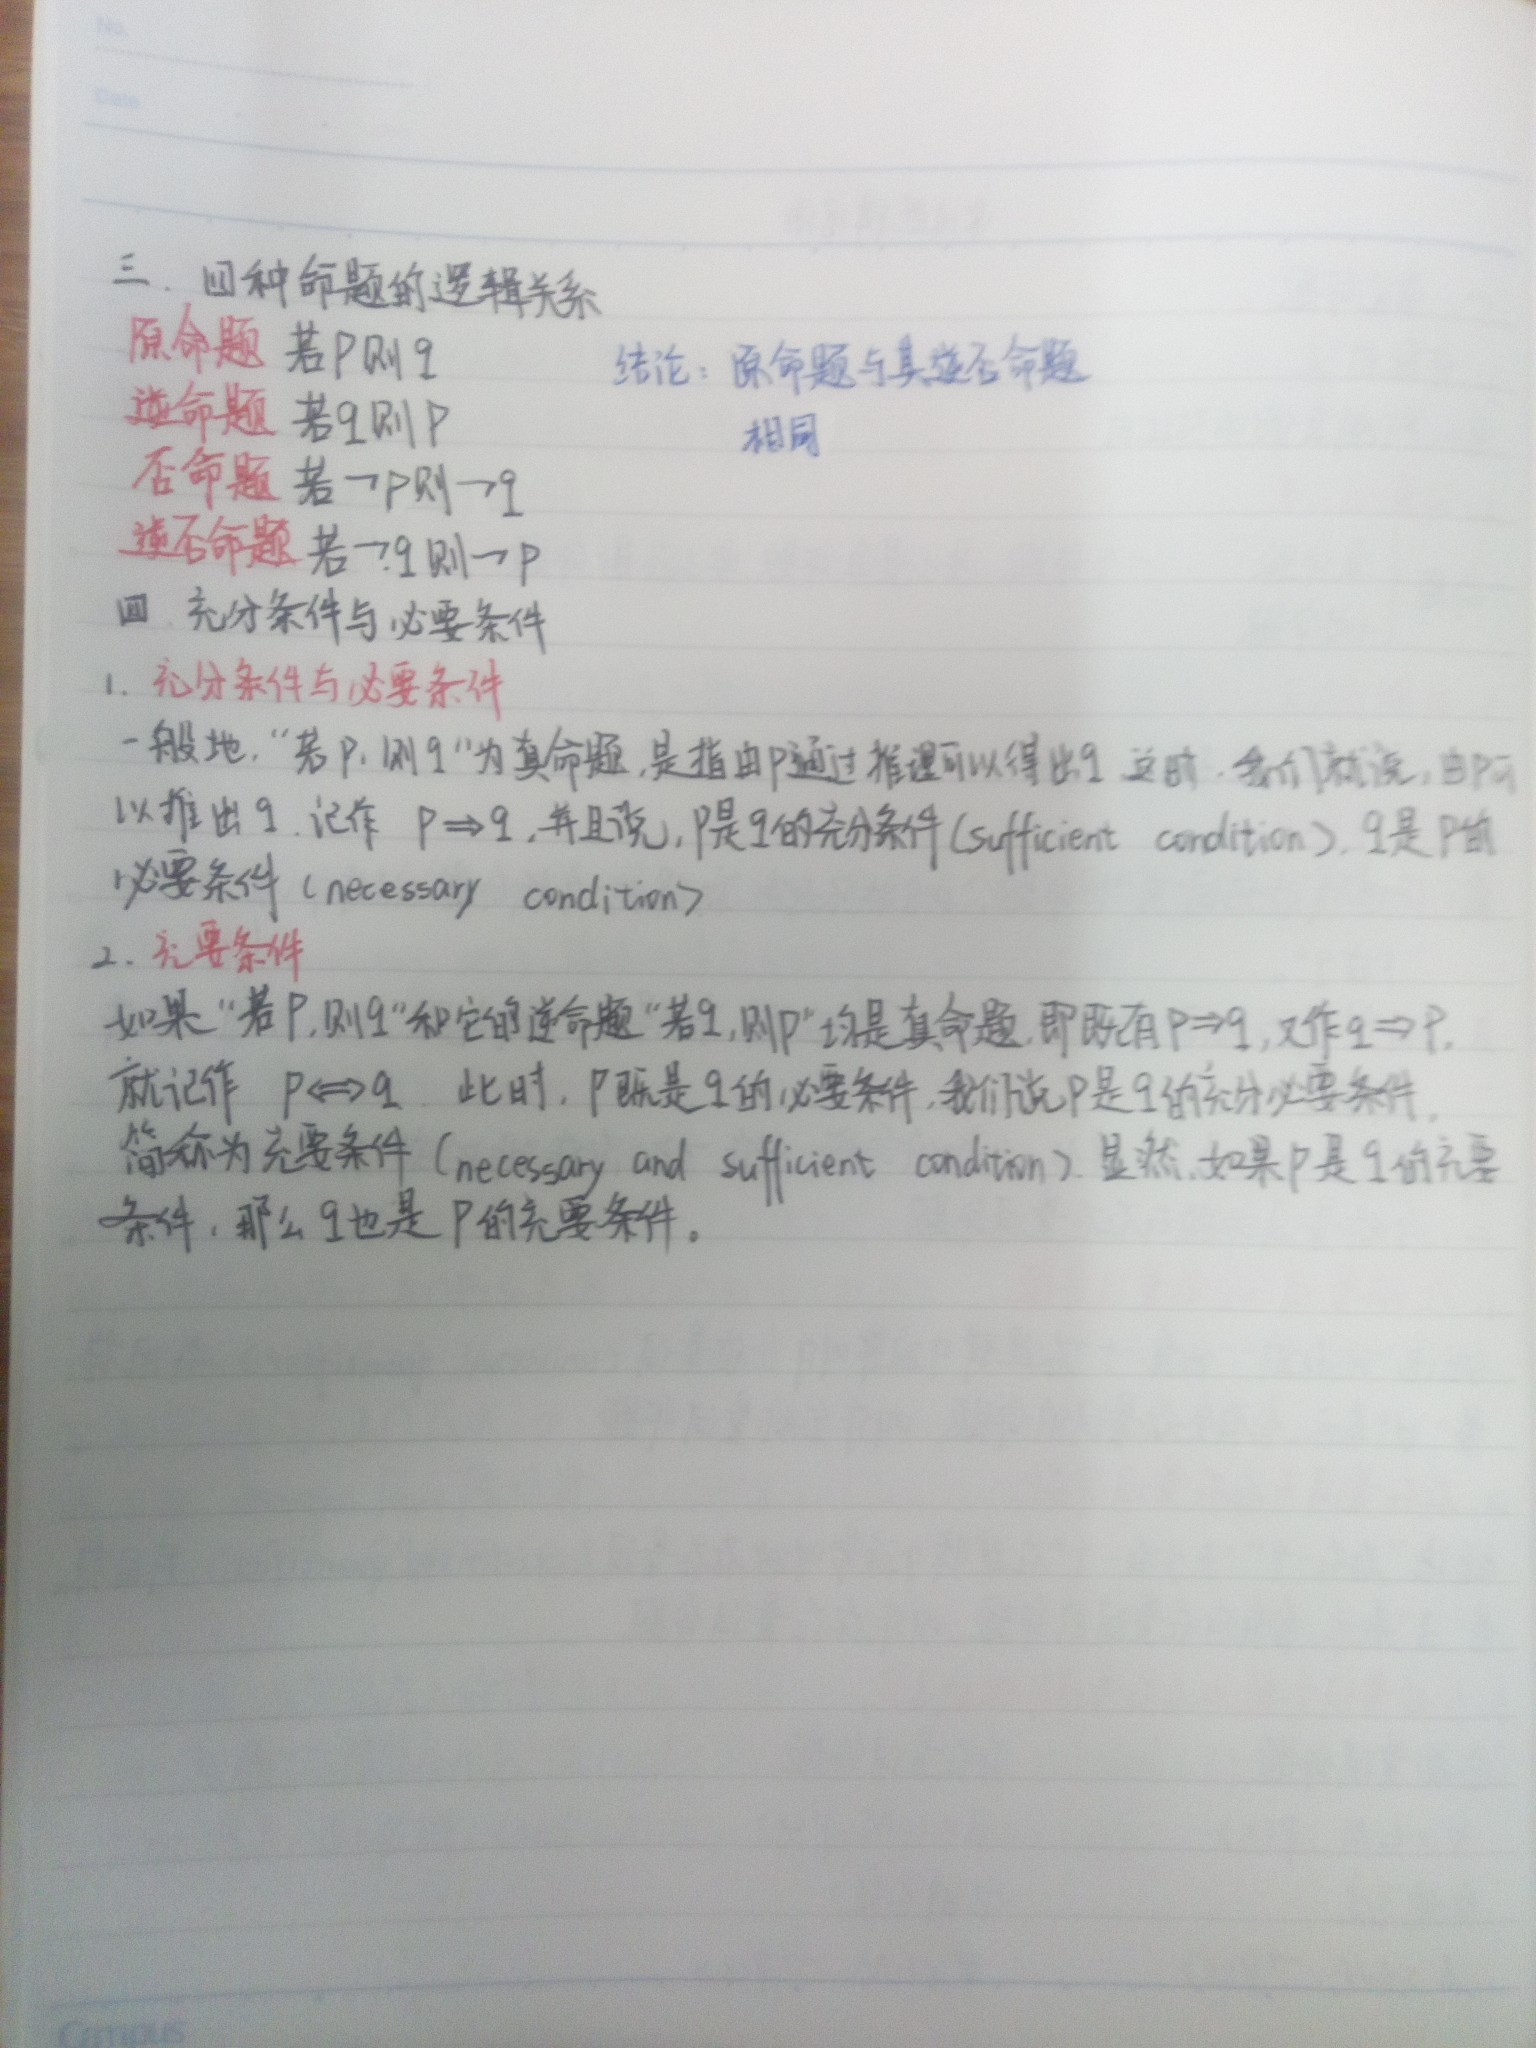 No.
Date
三. 四种命题的逻辑关系
原命题 若P则q
结论: 原命题与其逆否命题
逆命题 若q则P
相同
否命题 若¬P则¬q
逆否命题 若¬q则¬P
四. 充分条件与必要条件
1. 充分条件与必要条件
一般地,“若P,则q”为真命题,是指由P通过推理可以得出q 这时,我们就说,由P可
以推出q,记作 P⇒q,并且说,P是q的充分条件(sufficient condition),q是P的
必要条件(necessary condition)
2. 充要条件
如果“若P,则q”和它的逆命题“若q,则P”均是真命题,即既有P⇒q,又作q⇒P,
就记作 P⇔q. 此时,P既是q的必要条件,我们说P是q的充分必要条件,
简称为充要条件(necessary and sufficient condition).显然,如果P是q的充要
条件,那么q也是P的充要条件。
Campus